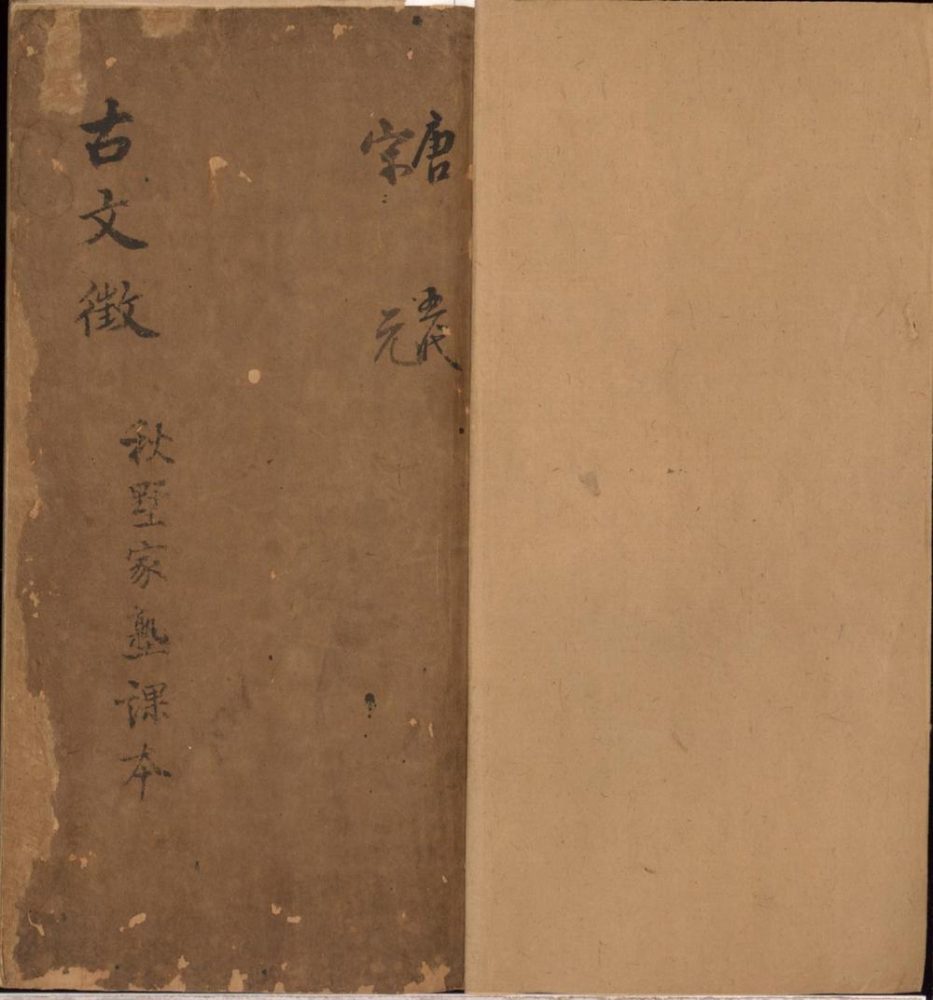 唐 五代
宋 元
古文徵
秋墅家塾課本